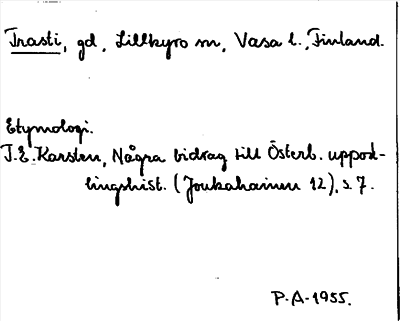 Trasti, gd, Lillkyro sn, Vasa l., Finland.
Etymologi.
T.E. Karsten, Några bidrag till Österb. uppod-
lingshist. (Joukahainen 12), s 7.
P.A. 1955.